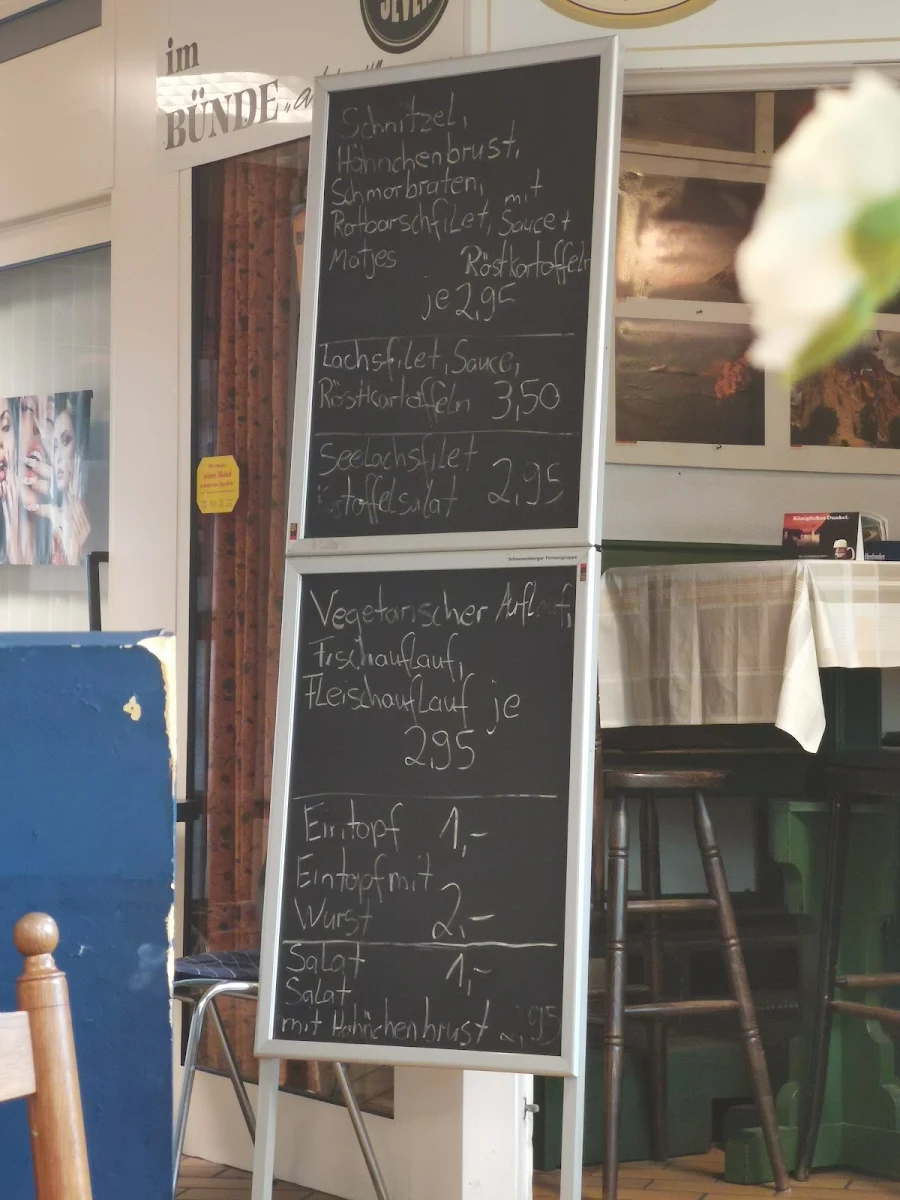 im
BÜNDE
Schnitzel,
Hähnchenbrust,
Schmorbraten,
Rotbarschfilet,
Matjes
mit
Sauce +
Röstkartoffeln
je 2,95
Lachsfilet, Sauce,
Röstkartoffeln 3,50
Seelachsfilet
2,95
Schwanenberger Firmengruppe
Vegetarischer Auflauf,
Fischauflauf,
Fleischauflauf je
2,95
Eintopf 1,-
Eintopf mit
Wurst 2,-
Salat 1,-
Salat
mit Hähnchenbrust
Königliches Dunkel.